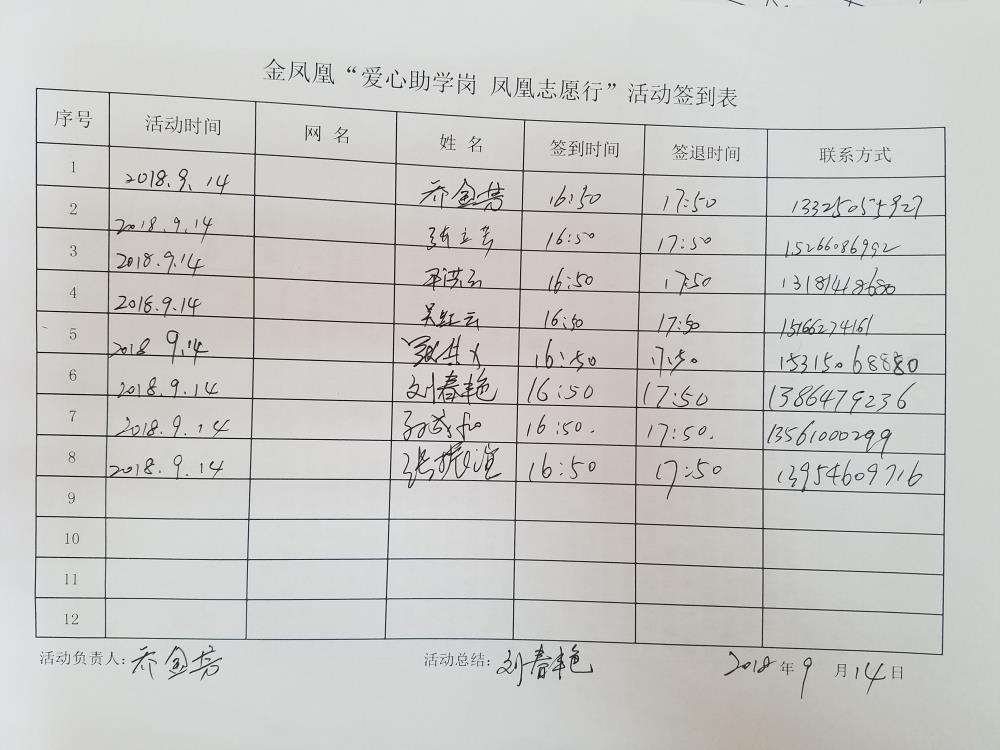 金凤凰“爱心助学岗 凤凰志愿行”活动签到表
序号 活动时间 网 名 姓 名 签到时间 签退时间 联系方式
1 2018.9.14 乔金芳 16:50 17:50 13325055927
2 2018.9.14 张立芳 16:50 17:50 15266086992
3 2018.9.14 洪云 16:50 17:50 13181418680
4 2018.9.14 吴红云 16:50 17:50 15166274161
5 2018 9.14 16:50 17:50 15315068880
6 2018.9.14 刘春艳 16:50 17:50 1386479236
7 2018.9.14 16:50. 17:50. 13561000299
8 2018.9.14 张振谊 16:50 17:50 13954609716
9
10
11
12
活动负责人:乔金芳 活动总结:刘春艳 2018年9月14日